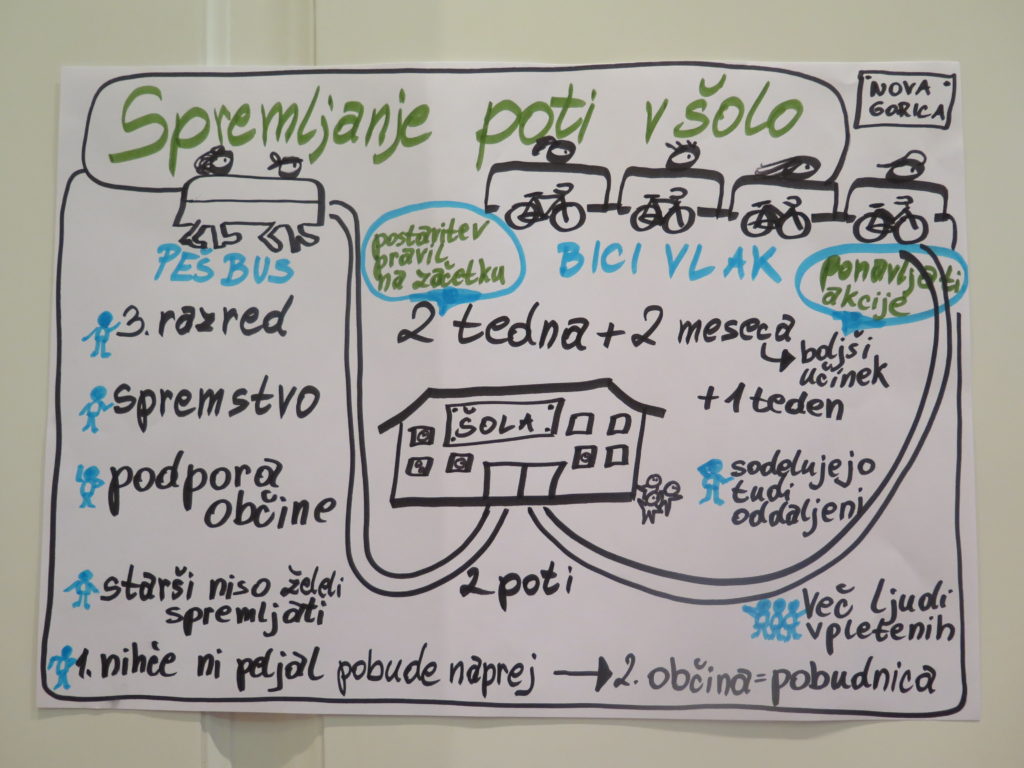 Spremljanje poti v šolo
NOVA
GORICA
PEŠ BUS
postavitev
pravil
na začetku
BICI VLAK
ponavljati
akcije
3. razred
spremstvo
podpora
občine
starši niso želeli
spremljati
2 tedna + 2 meseca
boljši
učinek
+ 1 teden
ŠOLA
sodelujejo
tudi
oddaljeni
2 poti
Več ljudi
vpletenih
1. nihče ni peljal pobude naprej → 2. občina = pobudnica